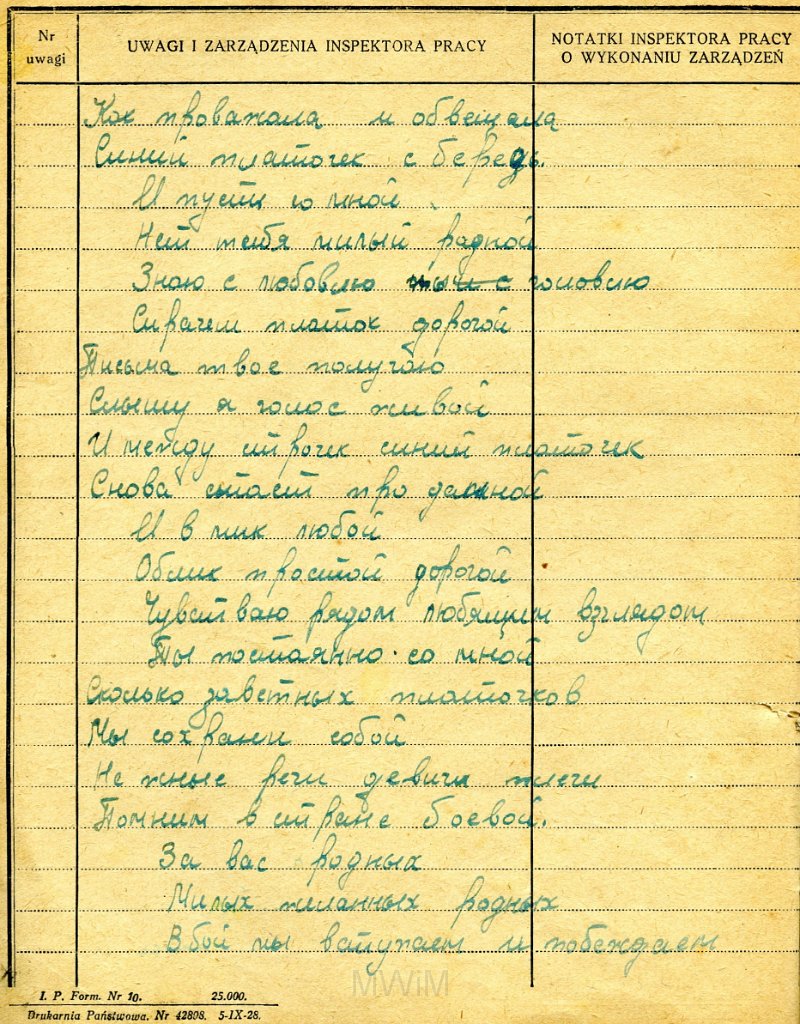 Nr
uwagi
UWAGI I ZARZĄDZENIA INSPEKTORA PRACY
NOTATKI INSPEKTORA PRACY
O WYKONANIU ZARZĄDZEŃ
Как проважала и обвещала
Синий платочек сбередь.
И пусть со мной
Нет тебя милый радной
Знаю с любовлю головлю
Спрачем платок дорогой
Писма твое получаю
Слышу я голос живой
И между строчек синий платочек
Снова стаст продамной
И в мик любой
Облик простой дорогой
Чувстваю рядом любящим взглядом
Ты постаянно со мной
Сколько заветных платочков
Мы сохраним собой
Не жные речи девичи плечи
Помним в стране боевой.
За вас родных
Милых желанных родных
В бой мы ватупаем и побеждаем
MWiM
I. P. Form. Nr 10. 25.000.
Drukarnia Państwowa. Nr 42808. 5-IX-28.